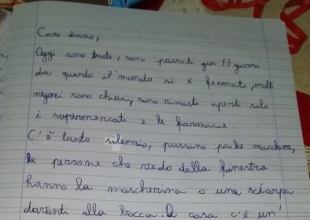 Caro diario,
Oggi sono triste, sono passati già 13 giorni
da quando il mondo si è fermato, molti
negozi sono chiusi, sono rimasti aperti solo
i supermercati e le farmacie.
C'è tanto silenzio, passano poche macchine,
le persone che vedo dalla finestra
hanno la mascherina o una sciarpa
davanti alla bocca. A casa c'è un'